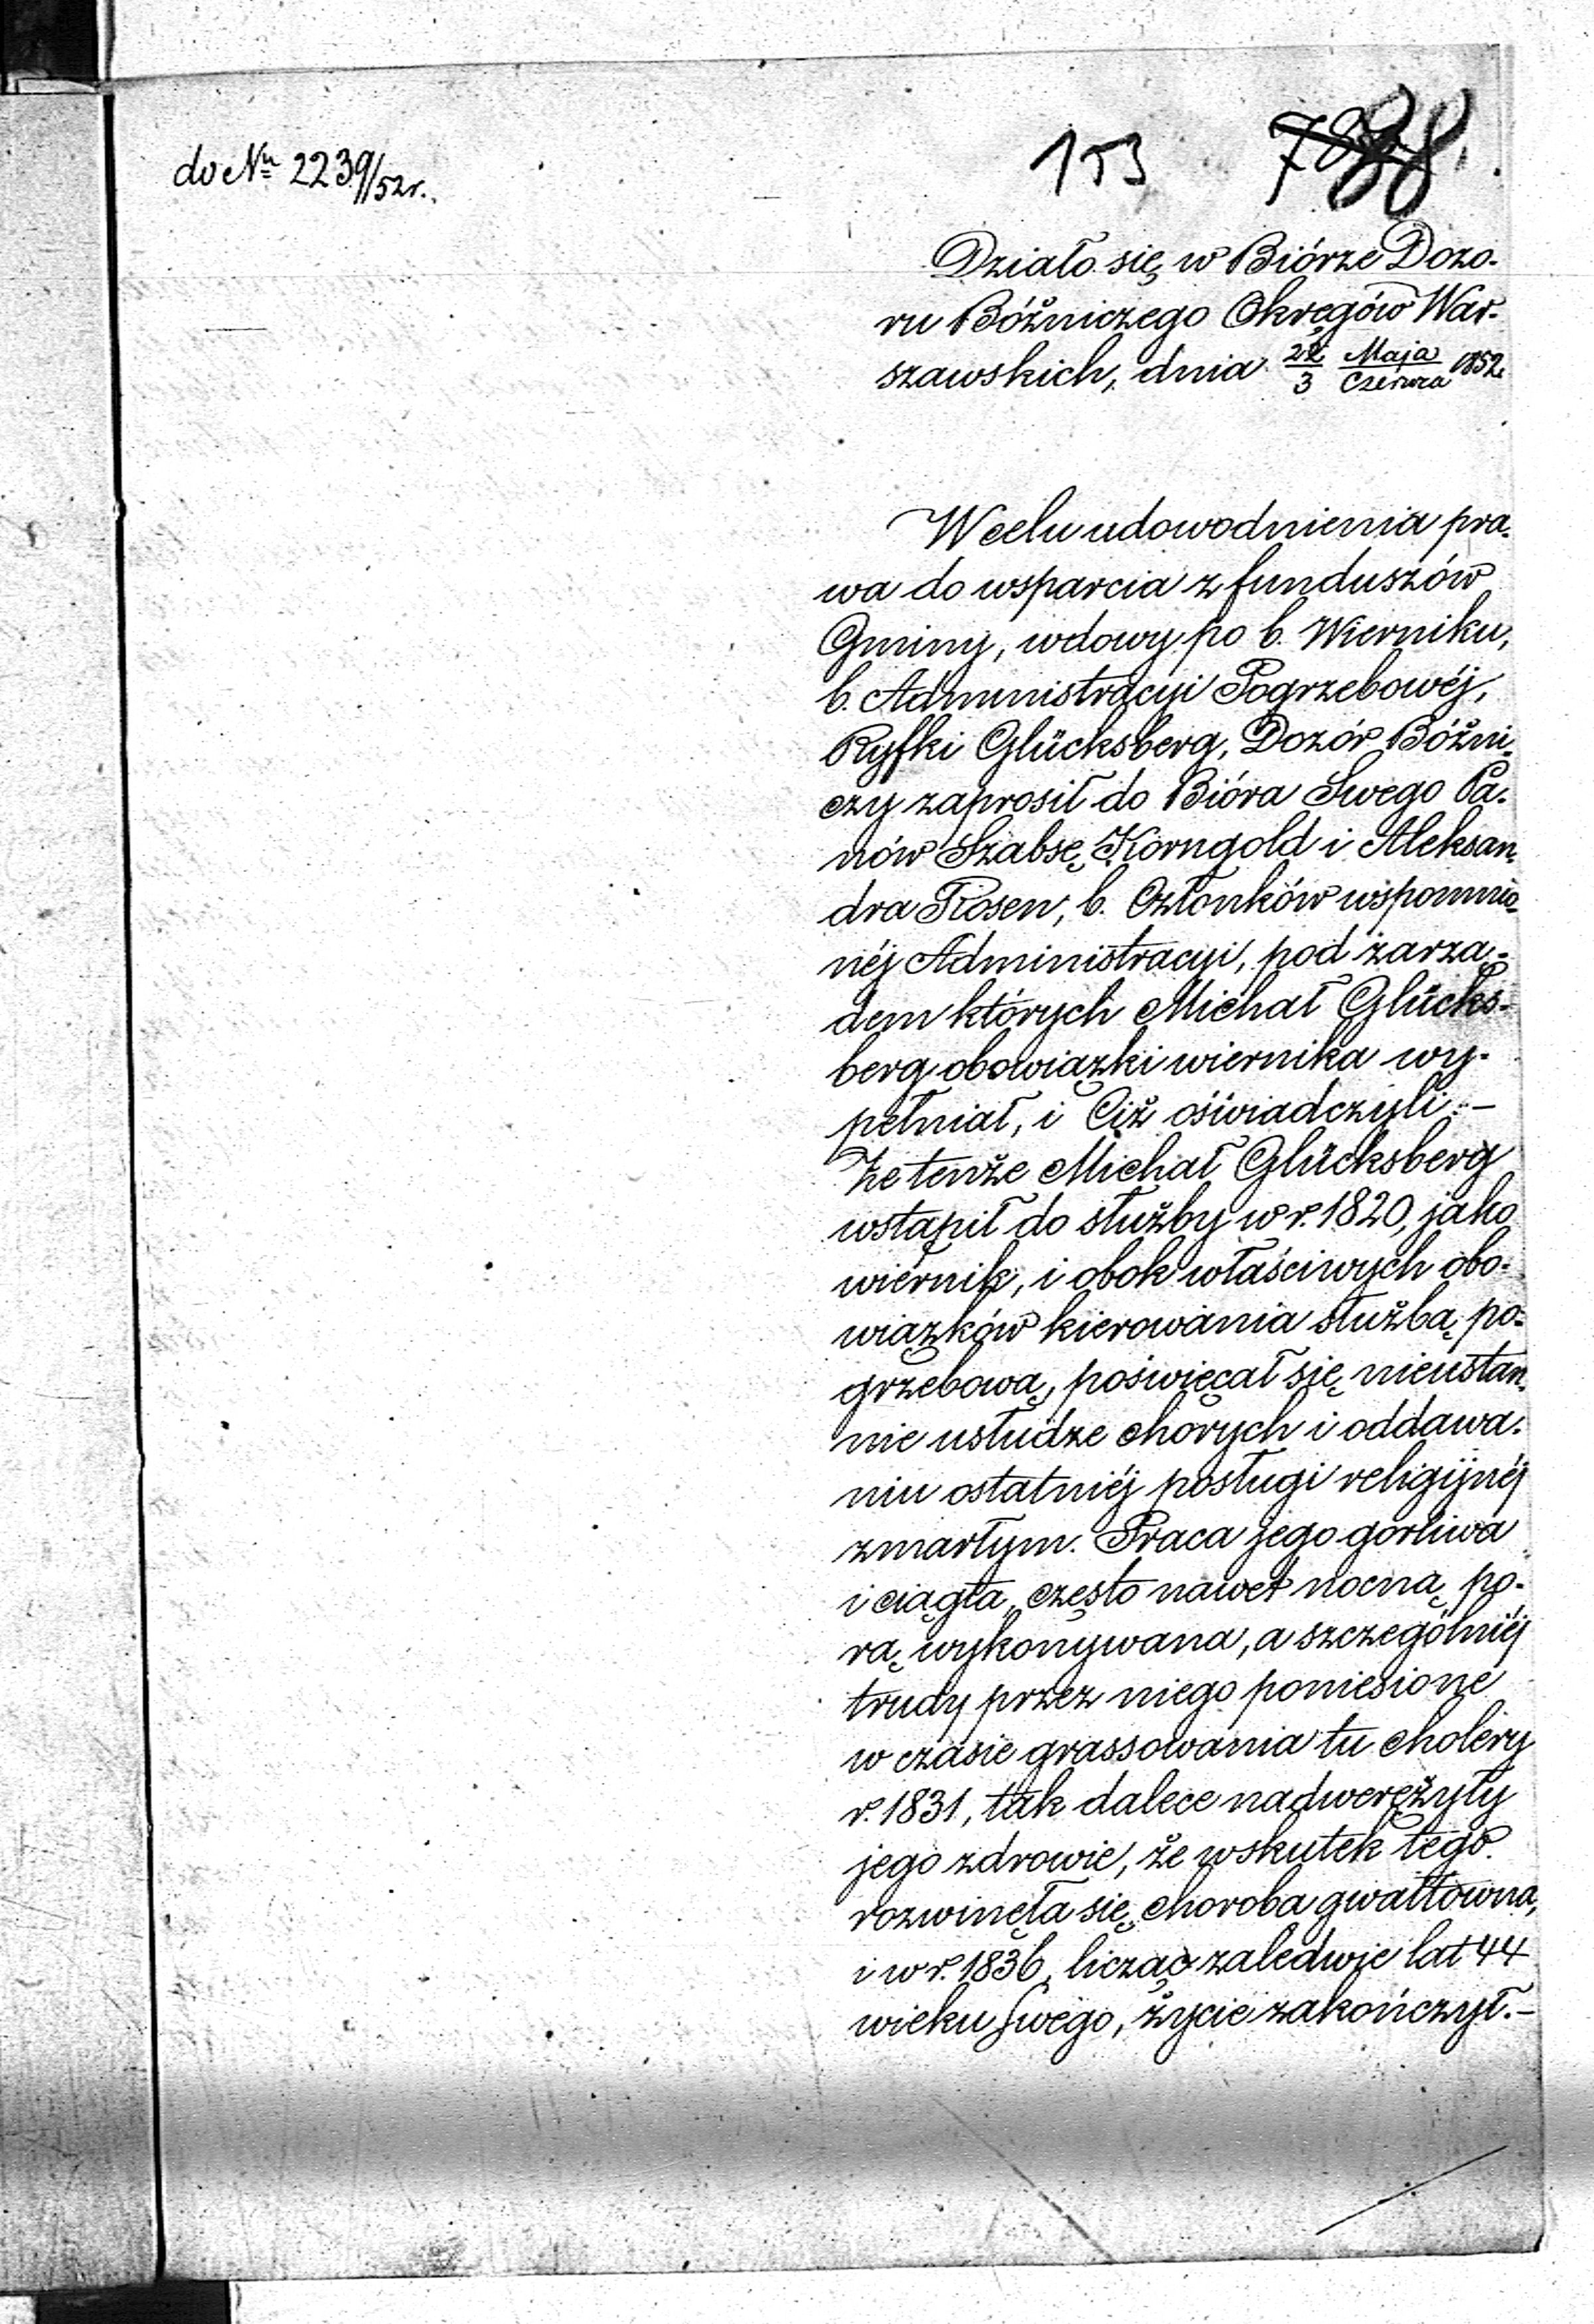 do Nr 2239/52 r.
153 88.
Działo się w Biórze Dozo-
ru Bóżniczego Okręgów War-
szawskich, dnia 22/3 Maja/Czerwca 1852
W celu udowodnienia pra-
wa do wsparcia z funduszów
Gminy, wdowy po b. Wierniku,
b. Administracyi Pogrzebowéj,
Ryfki Glücksberg, Dozór Bóżni-
czy zaprosił do Bióra Swego Pa-
nów Szabsę Korngold i Aleksan-
dra Rosen, b. Członków wspomnio-
néj Administracyi, pod zarzą-
dem których Michał Glücks-
berg obowiązki wiernika wy-
pełniał, i Ciż oświadczyli: -
Że tenże Michał Glücksberg
wstąpił do służby w r. 1820, jako
wiernik, i obok właściwych obo-
wiązków kierowania służbą po-
grzebową, poświęcał się nieustan-
nie usłudze chorych i oddawa-
niu ostatniéj posługi religijnéj
zmarłym. Praca jego gorliwa
i ciągła, często nawet nocną po-
rą wykonywana, a szczególniéj
trudy przez niego poniesione
w czasie grassowania tu cholery
r. 1831, tak dalece nadwerężyły
jego zdrowie, że wskutek tego
rozwinęła się choroba gwałtowna,
i w r. 1836, licząc zaledwie lat 44
wieku swego, życie zakończył. -